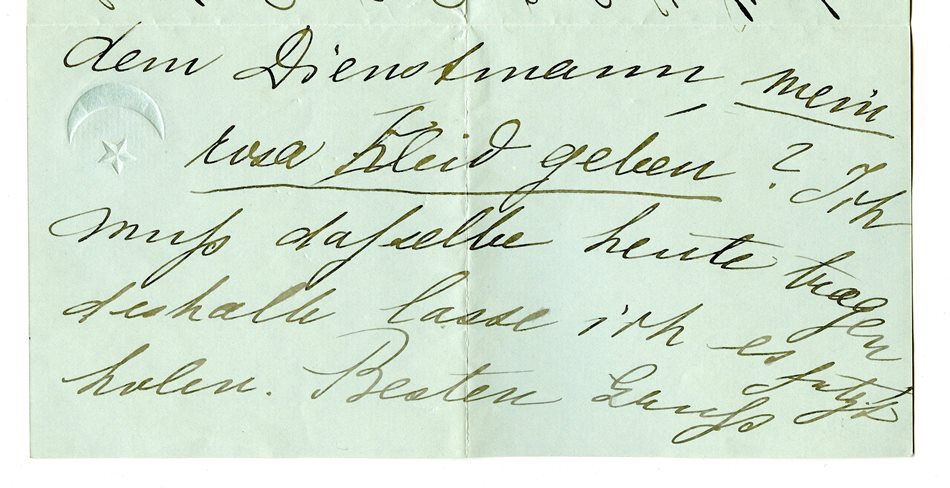 dem Dienstmann, mein
rosa Kleid geben? Ich
muß daßelbe heute tragen
deshalb lasse ich es
holen. Besten Gruß